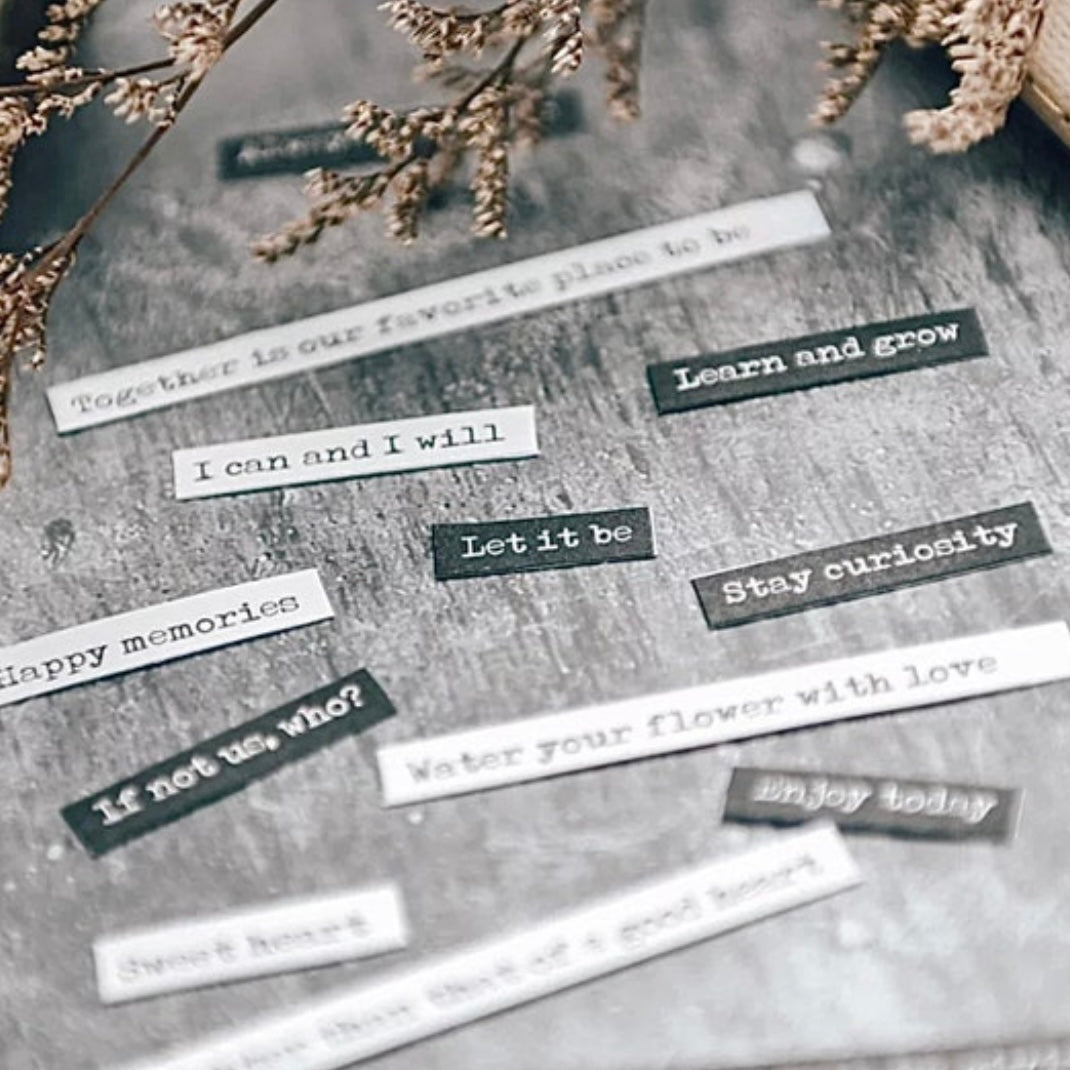 Together is our favorite place to be
Learn and grow
I can and I will
Let it be
Stay curiosity
Happy memories
If not us, who?
Water your flower with love
Enjoy today
Sweet heart
than that of a good heart